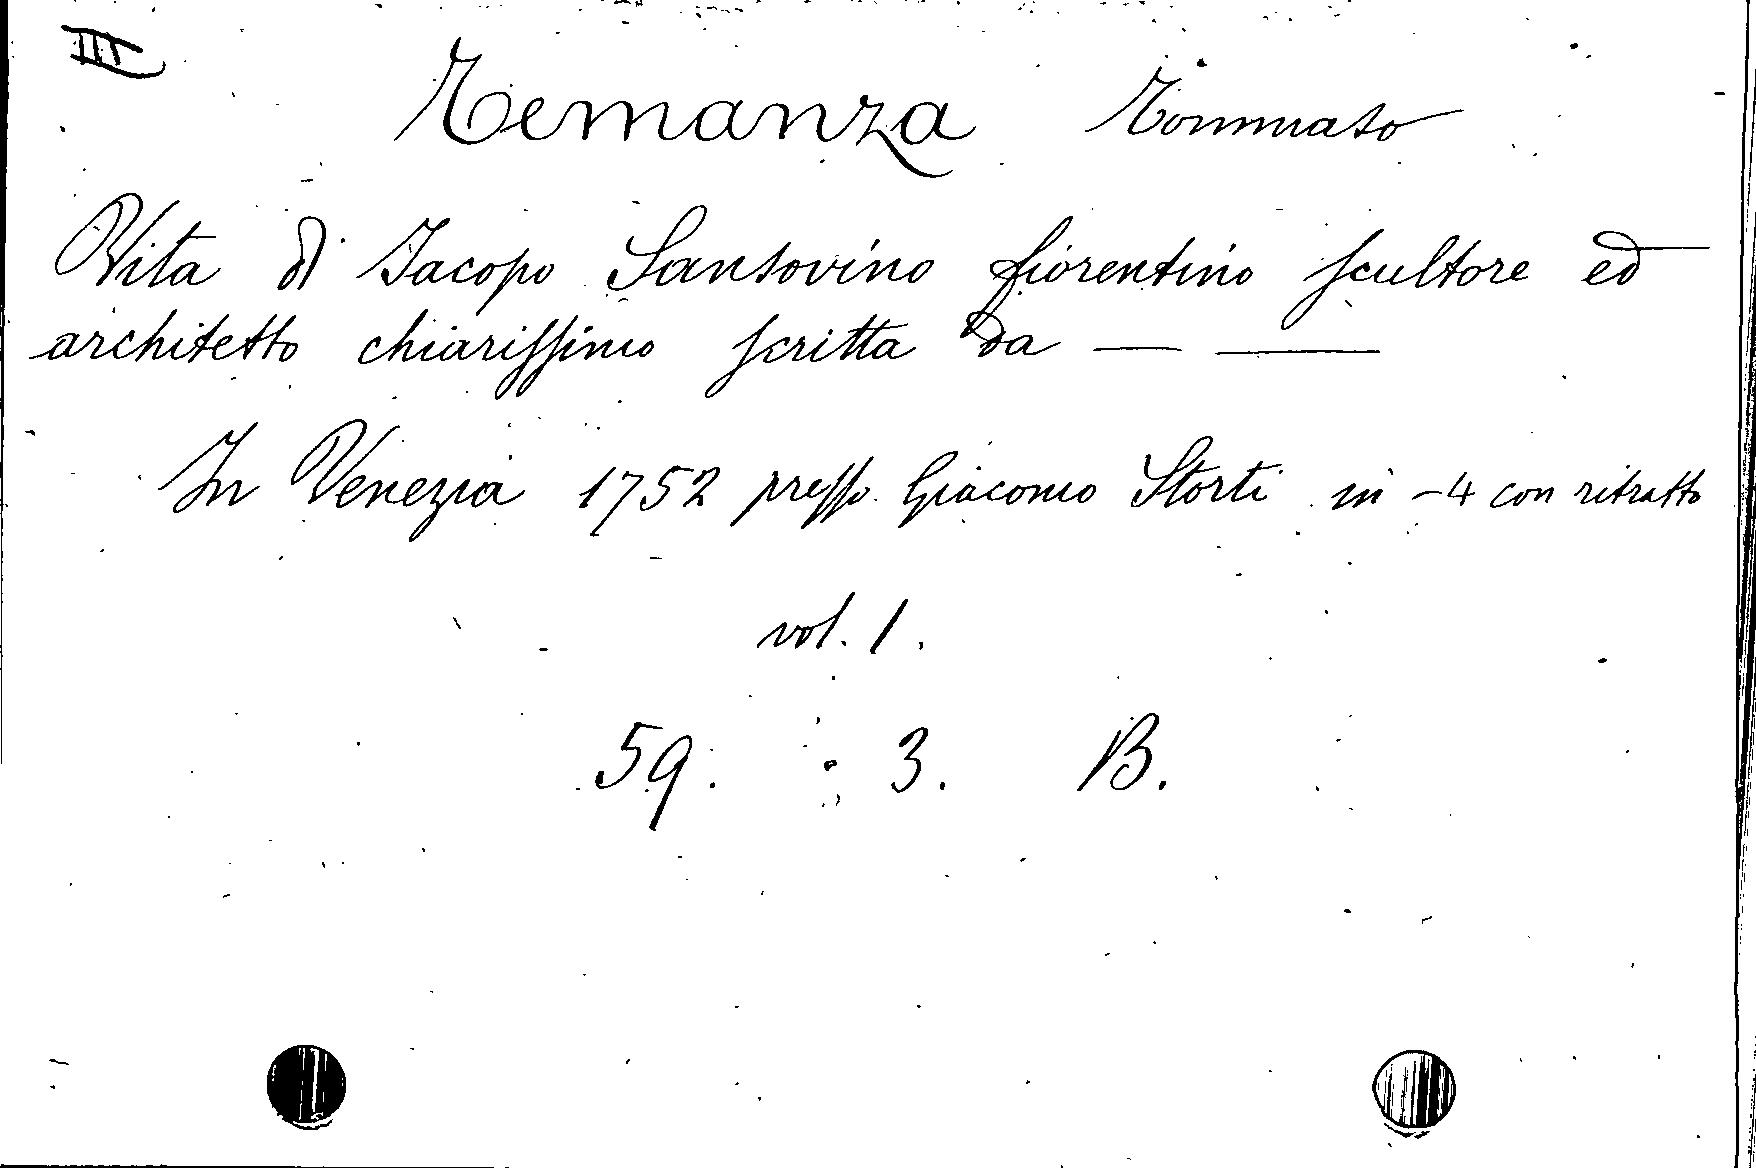 III
Temanza Tommaso
Vita di Jacopo Sansovino fiorentino scultore ed
architetto chiarissimo scritta da — —
In Venezia 1752 presso Giacomo Storti in -4 con ritratto
vol. 1.
59. 3. B.